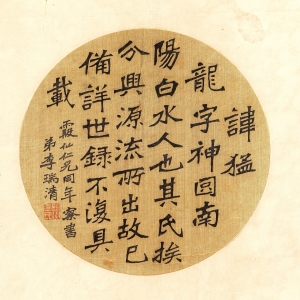 諱猛
龍字神囧南
陽白水人也其氏族
分興源流所出故已
備詳世錄不復具
載
霞仙仁兄同年察書
弟李瑞清